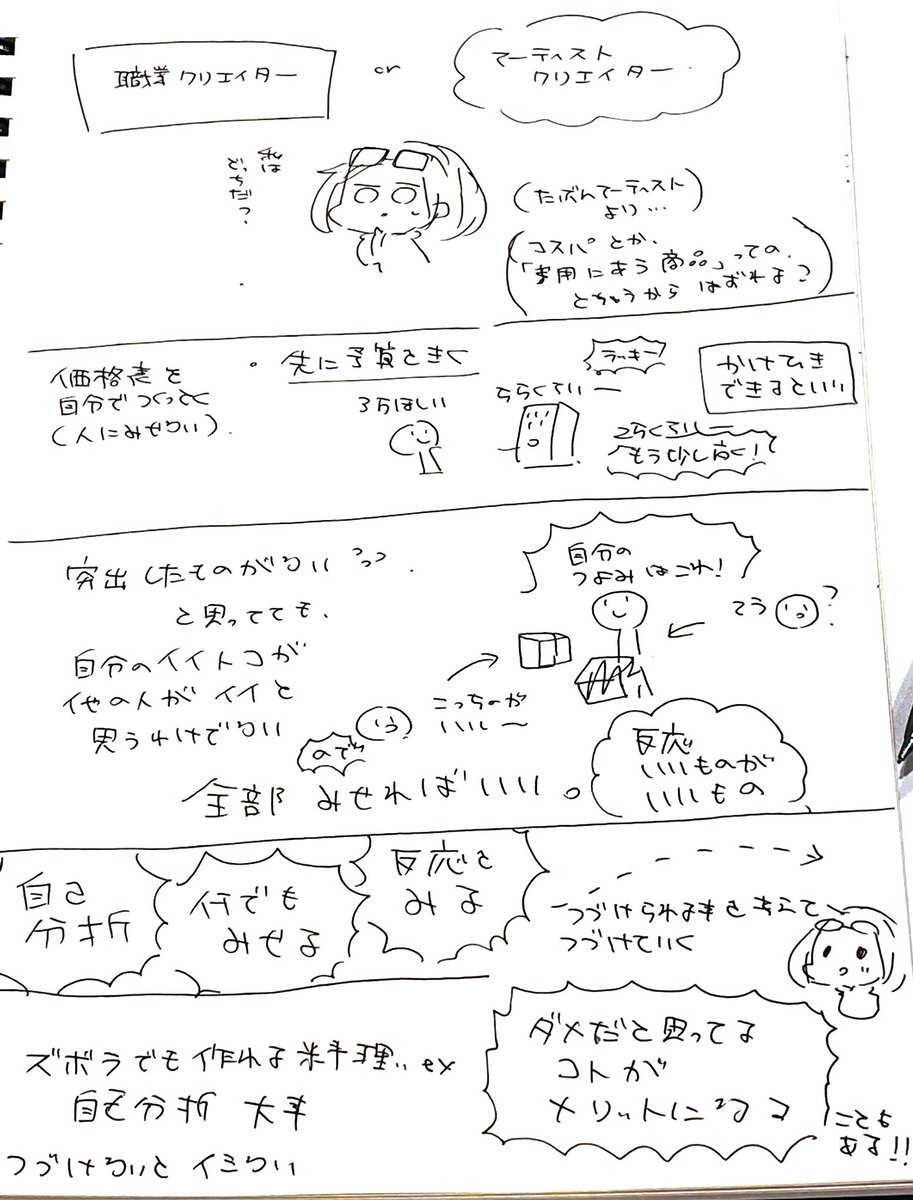 職業クリエイター
or
アーティスト
クリエイター
私は
どっちだ?
(たぶんアーティスト
より…)
(コスパとか、
「費用にあう商品」っての、
とちゅうからはずれる?)
価格表を
自分でつくっとく
(人にみせない).
・先に予算をきく
3万ほしい
5万くらいー
ラッキー
2万くらいー
もう少し高く!
かけひき
できるといい
突出したものがない
と思ってても、
自分のイイトコが
他の人がイイと
思うわけでない
ので
全部みせればいい。
自分の
つよみはこれ!
そう
?
こっちのが
いいー
反応
いいものが
いいもの
自己
分析
何でも
みせる
反応を
みる
つづけられる事を考えて
つづけていく
ズボラでも作れる料理.. ex
自己分析 大事
つづけないとイミない
ダメだと思ってる
コトが
メリットになる
こても
ある!!